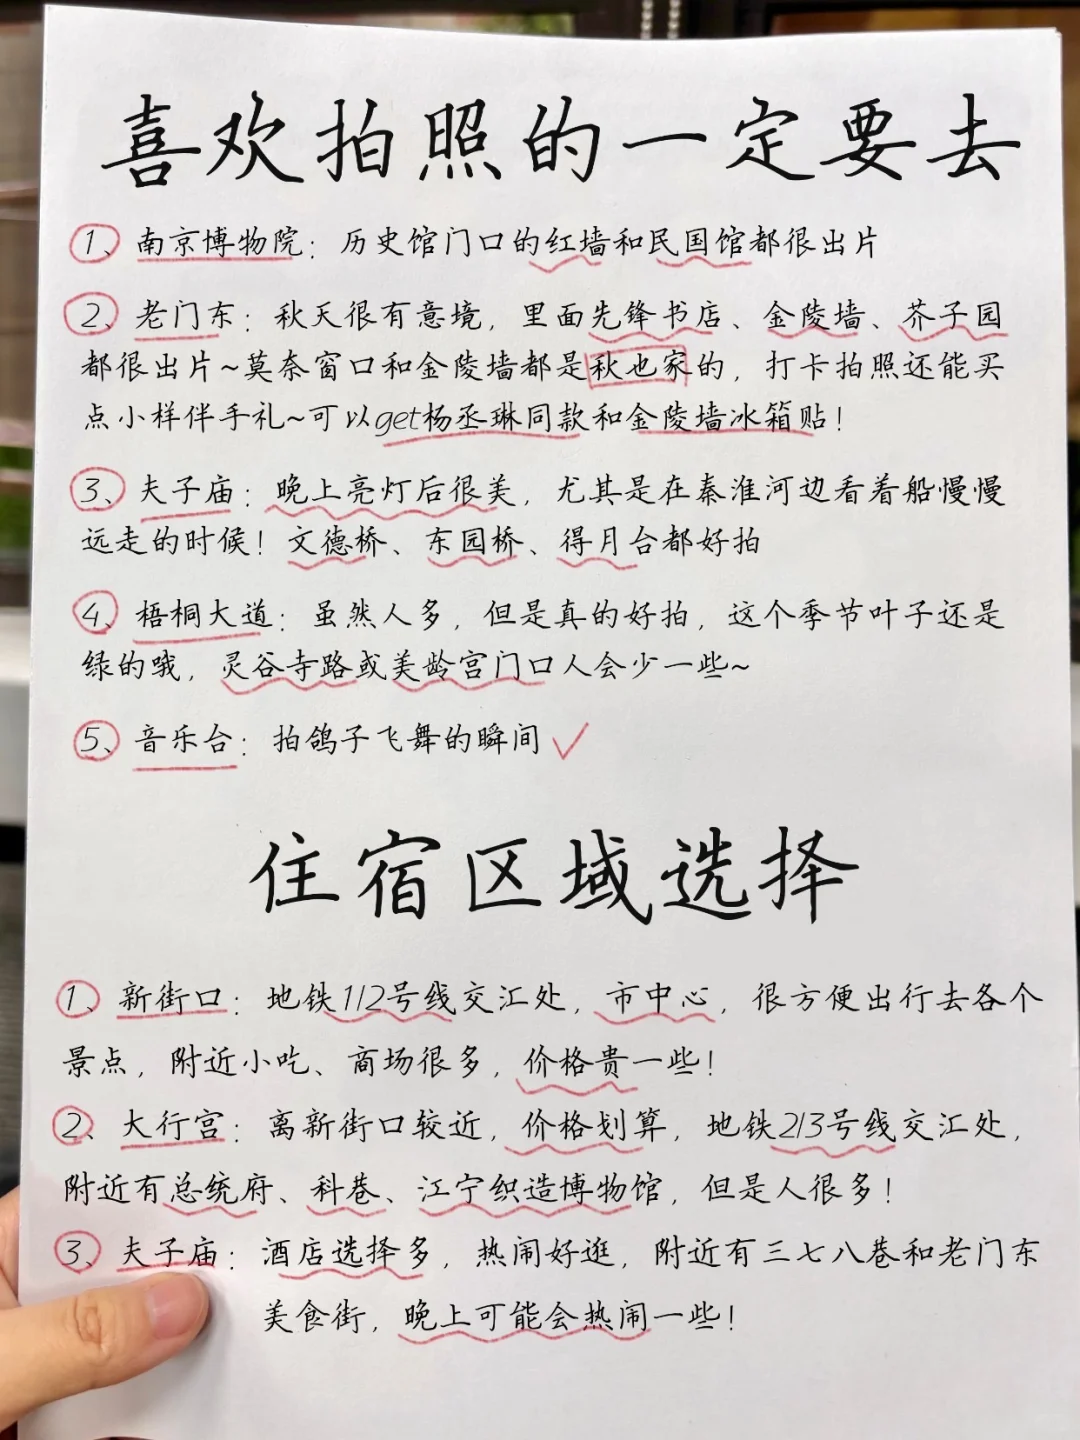 喜欢拍照的一定要去
1、南京博物院：历史馆门口的红墙和民国馆都很出片
2、老门东：秋天很有意境，里面先锋书店、金陵墙、芥子园
都很出片~莫奈窗口和金陵墙都是秋也家的，打卡拍照还能买
点小样伴手礼~可以get杨丞琳同款和金陵墙冰箱贴！
3、夫子庙：晚上亮灯后很美，尤其是在秦淮河边看着船慢慢
远走的时候！文德桥、东园桥、得月台都好拍
4、梧桐大道：虽然人多，但是真的好拍，这个季节叶子还是
绿的哦，灵谷寺路或美龄宫门口人会少一些~
5、音乐台：拍鸽子飞舞的瞬间
住宿区域选择
1、新街口：地铁1/2号线交汇处，市中心，很方便出行去各个
景点，附近小吃、商场很多，价格贵一些！
2、大行宫：离新街口较近，价格划算，地铁2/3号线交汇处，
附近有总统府、科巷、江宁织造博物馆，但是人很多！
3、夫子庙：酒店选择多，热闹好逛，附近有三七八巷和老门东
美食街，晚上可能会热闹一些！